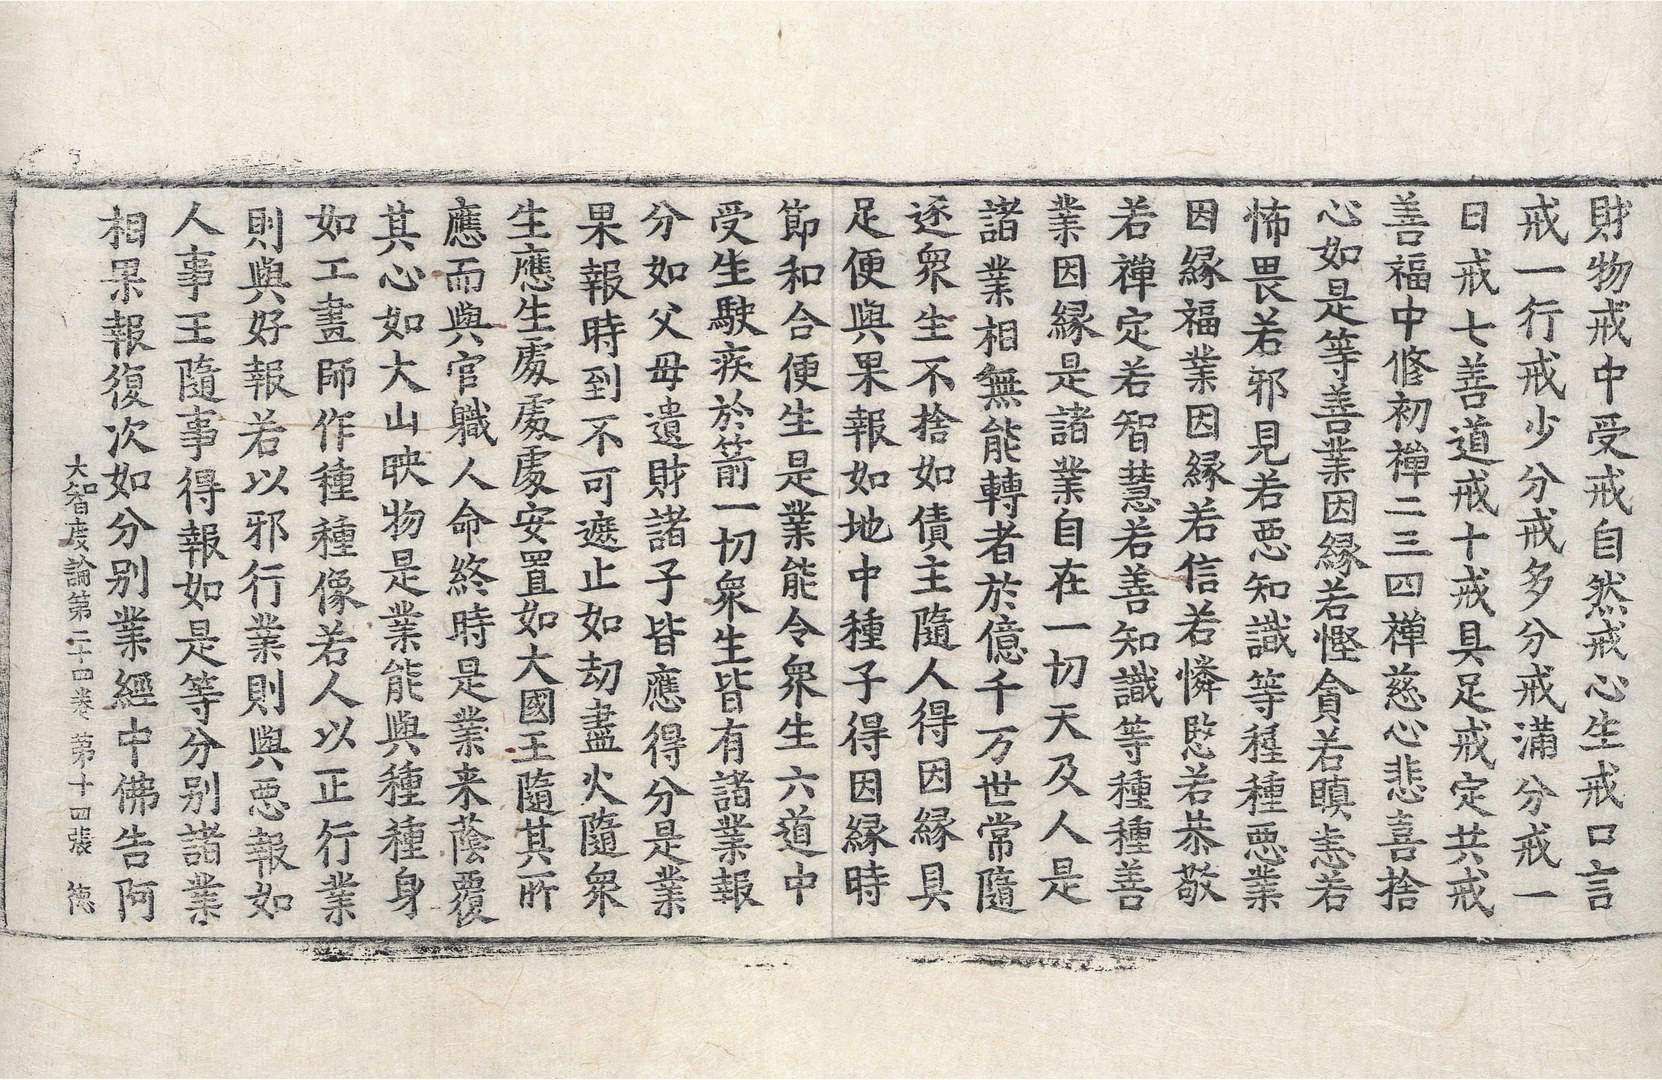 財物戒中受戒自然戒心生戒口言
戒一行戒少分戒多分戒滿分戒一
日戒七善道戒十戒具足戒定共戒
善福中修初禪二三四禪慈心悲喜捨
心如是等善業因緣若慳貪若瞋恚若
怖畏若邪見若惡知識等種種惡業
因緣福業因緣若信若憐愍若恭敬
若禪定若智慧若善知識等種種善
業因緣是諸業自在一切天及人是
諸業相無能轉者於億千万世常隨
逐衆生不捨如債主隨人得因緣具
足便與果報如地中種子得因緣時
節和合便生是業能令衆生六道中
受生駛疾於箭一切衆生皆有諸業報
分如父母遺財諸子皆應得分是業
果報時到不可遮止如劫盡火隨衆
生應生處處處安置如大國王隨其所
應而與官職人命終時是業来蔭覆
其心如大山映物是業能與種種身
如工畫師作種種像若人以正行業
則與好報若以邪行業則與惡報如
人事王隨事得報如是等分别諸業
相果報復次如分别業經中佛告阿
大智度論第二十四卷 第十四張 徳